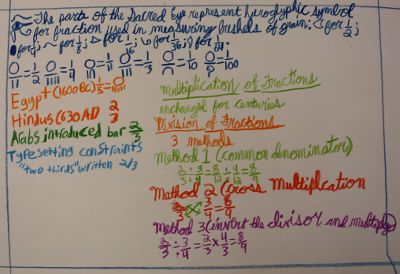 The parts of the Sacred Eye represent hieroglyphic symbol
for fraction used in measuring bushels of grain: 1/2;
for 1/4; for 1/8; for 1/16; for 1/32; for 1/64.
= 1/2 = 1/4 = 1/5 = 1/3 = 1/10 = 1/100
Egypt (1600 BC) 1/5 =
Hindus (630 AD 2/3
Arabs introduced bar 2/3
Typesetting constraints
"two thirds" written 2/3
Multiplication of Fractions
unchanged for centuries
Division of Fractions
3 methods
Method 1 (common denominator)
2/3 ÷ 3/4 = 8/12 ÷ 9/12 = 8/9
Method 2 (cross multiplication
2/3 × 3/4 = 8/9
Method 3 (invert the divisor and multiply)
2/3 ÷ 3/4 = 2/3 x 4/3 = 8/9